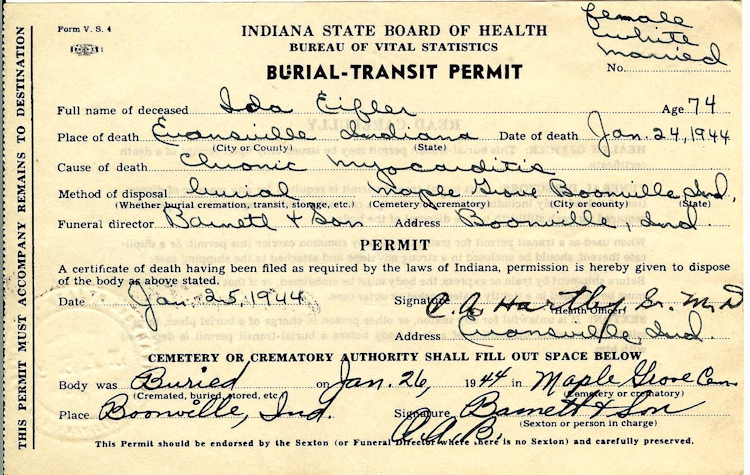 Form V. S. 4
INDIANA STATE BOARD OF HEALTH
BUREAU OF VITAL STATISTICS
BURIAL-TRANSIT PERMIT
female
white
married
No.
Full name of deceased Ida Eifler Age 74
Place of death Evansville Indiana Date of death Jan. 24, 1944
(City or County) (State)
Cause of death Chronic Myocarditis
Method of disposal burial Maple Grove Boonville, Ind.
(Whether burial cremation, transit, storage, etc.) (Cemetery or crematory) (City or county) (State)
Funeral director Barnett & Son Address Boonville, Ind.
PERMIT
A certificate of death having been filed as required by the laws of Indiana, permission is hereby given to dispose
of the body as above stated.
Date Jan. 25, 1944 Signature C. A. Hartley Sr. M. D
(Health Officer)
Address Evansville, Ind
CEMETERY OR CREMATORY AUTHORITY SHALL FILL OUT SPACE BELOW
Body was Buried on Jan. 26, 1944 in Maple Grove Cem
(Cremated, buried, stored, etc. (Cemetery or crematory)
Place Boonville, Ind. Signature Barnett & Son
(Sexton or person in charge)
O. A. B.
This Permit should be endorsed by the Sexton (or Funeral Director where there is no Sexton) and carefully preserved.
THIS PERMIT MUST ACCOMPANY REMAINS TO DESTINATION